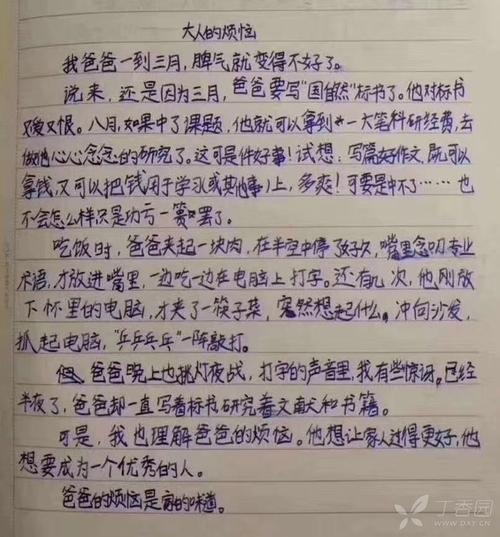 大人的烦恼
我爸爸一到三月，脾气就变得不好了。
说来，还是因为三月，爸爸要写"国自然"标书了。他对标书
又爱又恨。八月，如果中了课题，他就可以拿到一大笔科研经费，去
做他心心念念的研究了。这可是件好事！试想：写篇好作文，既可以
拿钱，又可以把钱用于学习（或其他事）上，多爽！可要是中不了……也
不会怎么样只是功亏一篑罢了。
吃饭时，爸爸夹起一块肉，在半空中停了好久，嘴里念叨专业
术语，才放进嘴里，一边吃一边在电脑上打字。还有几次，他刚放
下怀里的电脑，才夹了一筷子菜，突然想起什么。冲向沙发，
抓起电脑，"乒乒乓乓"一阵敲打。
爸爸晚上也挑灯夜战，打字的声音里，我有些惊讶。已经
半夜了，爸爸却一直写着标书，研究着文献和书籍。
可是，我也理解爸爸的烦恼。他想让家人过得更好，他
想要成为一个优秀的人。
爸爸的烦恼是家的味道。
丁香园
WWW.DXY.CN